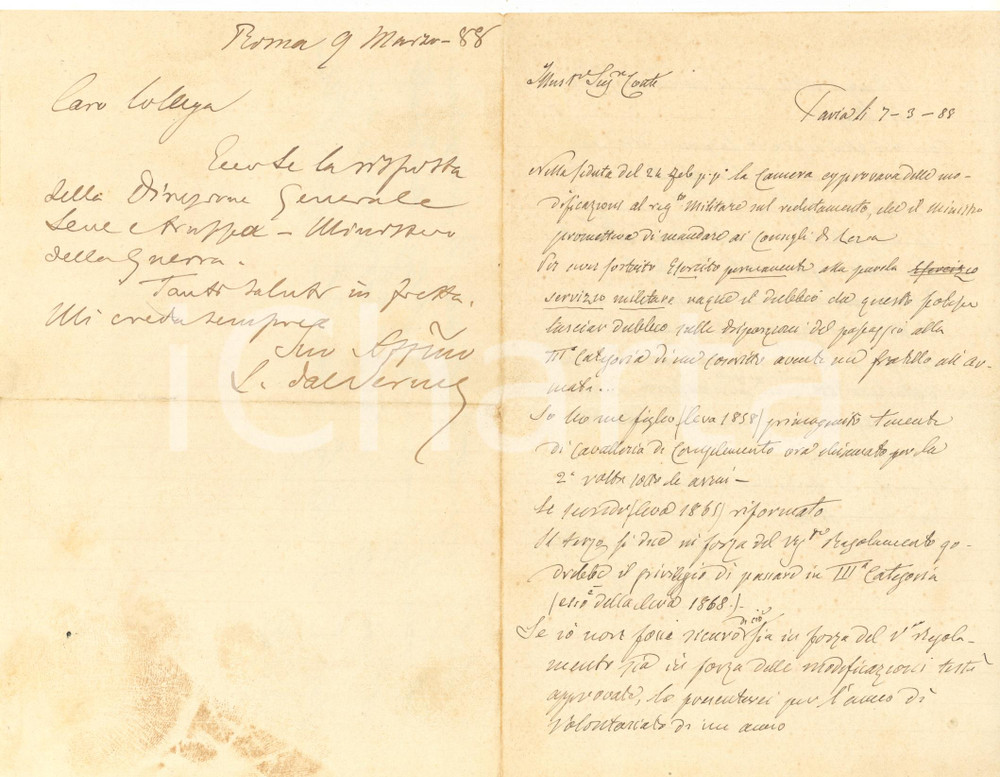 Roma 9 Marzo - 88
Caro Collega
Eccole la risposta
della Direzione Generale
Leve e truppa - Ministero
della Guerra.
Tanti saluti in fretta.
Mi creda sempre
Suo Affmo
L. dal Verme
Illus.re Sig.re Conte
Pavia li 7 - 3 - 88
Nella seduta del 24 Feb. p.p. la Camera approvava delle mo-
dificazioni al reg.to Militare sul reclutamento, che il Ministro
prometteva di mandare ai Consigli di Leva
Per aver sostituito Esercito permanente alla parola Esercizio
servizio militare nacque il dubbio che questo potesse
lasciar dubbio sulle disposizioni del passaggio alla
III.a Categoria di un coscritto avente un fratello all'ar-
mata...
Io ho un figlio (leva 1858) primogenito tenente
di Cavalleria di Complemento ora chiamato per la
2.a volta sotto le armi -
Il secondo (leva 1865) riformato
Il terzo, si dice in forza del Regolamento go-
drebbe il privilegio di passare in III.a Categoria
(esso è della leva 1868.) -
Se io non fossi sicuro di ciò sia in forza del Regola-
mento sia in forza delle modificazioni testè
approvate, lo presenterei per l'anno di
Volontariato di un anno
iCharta